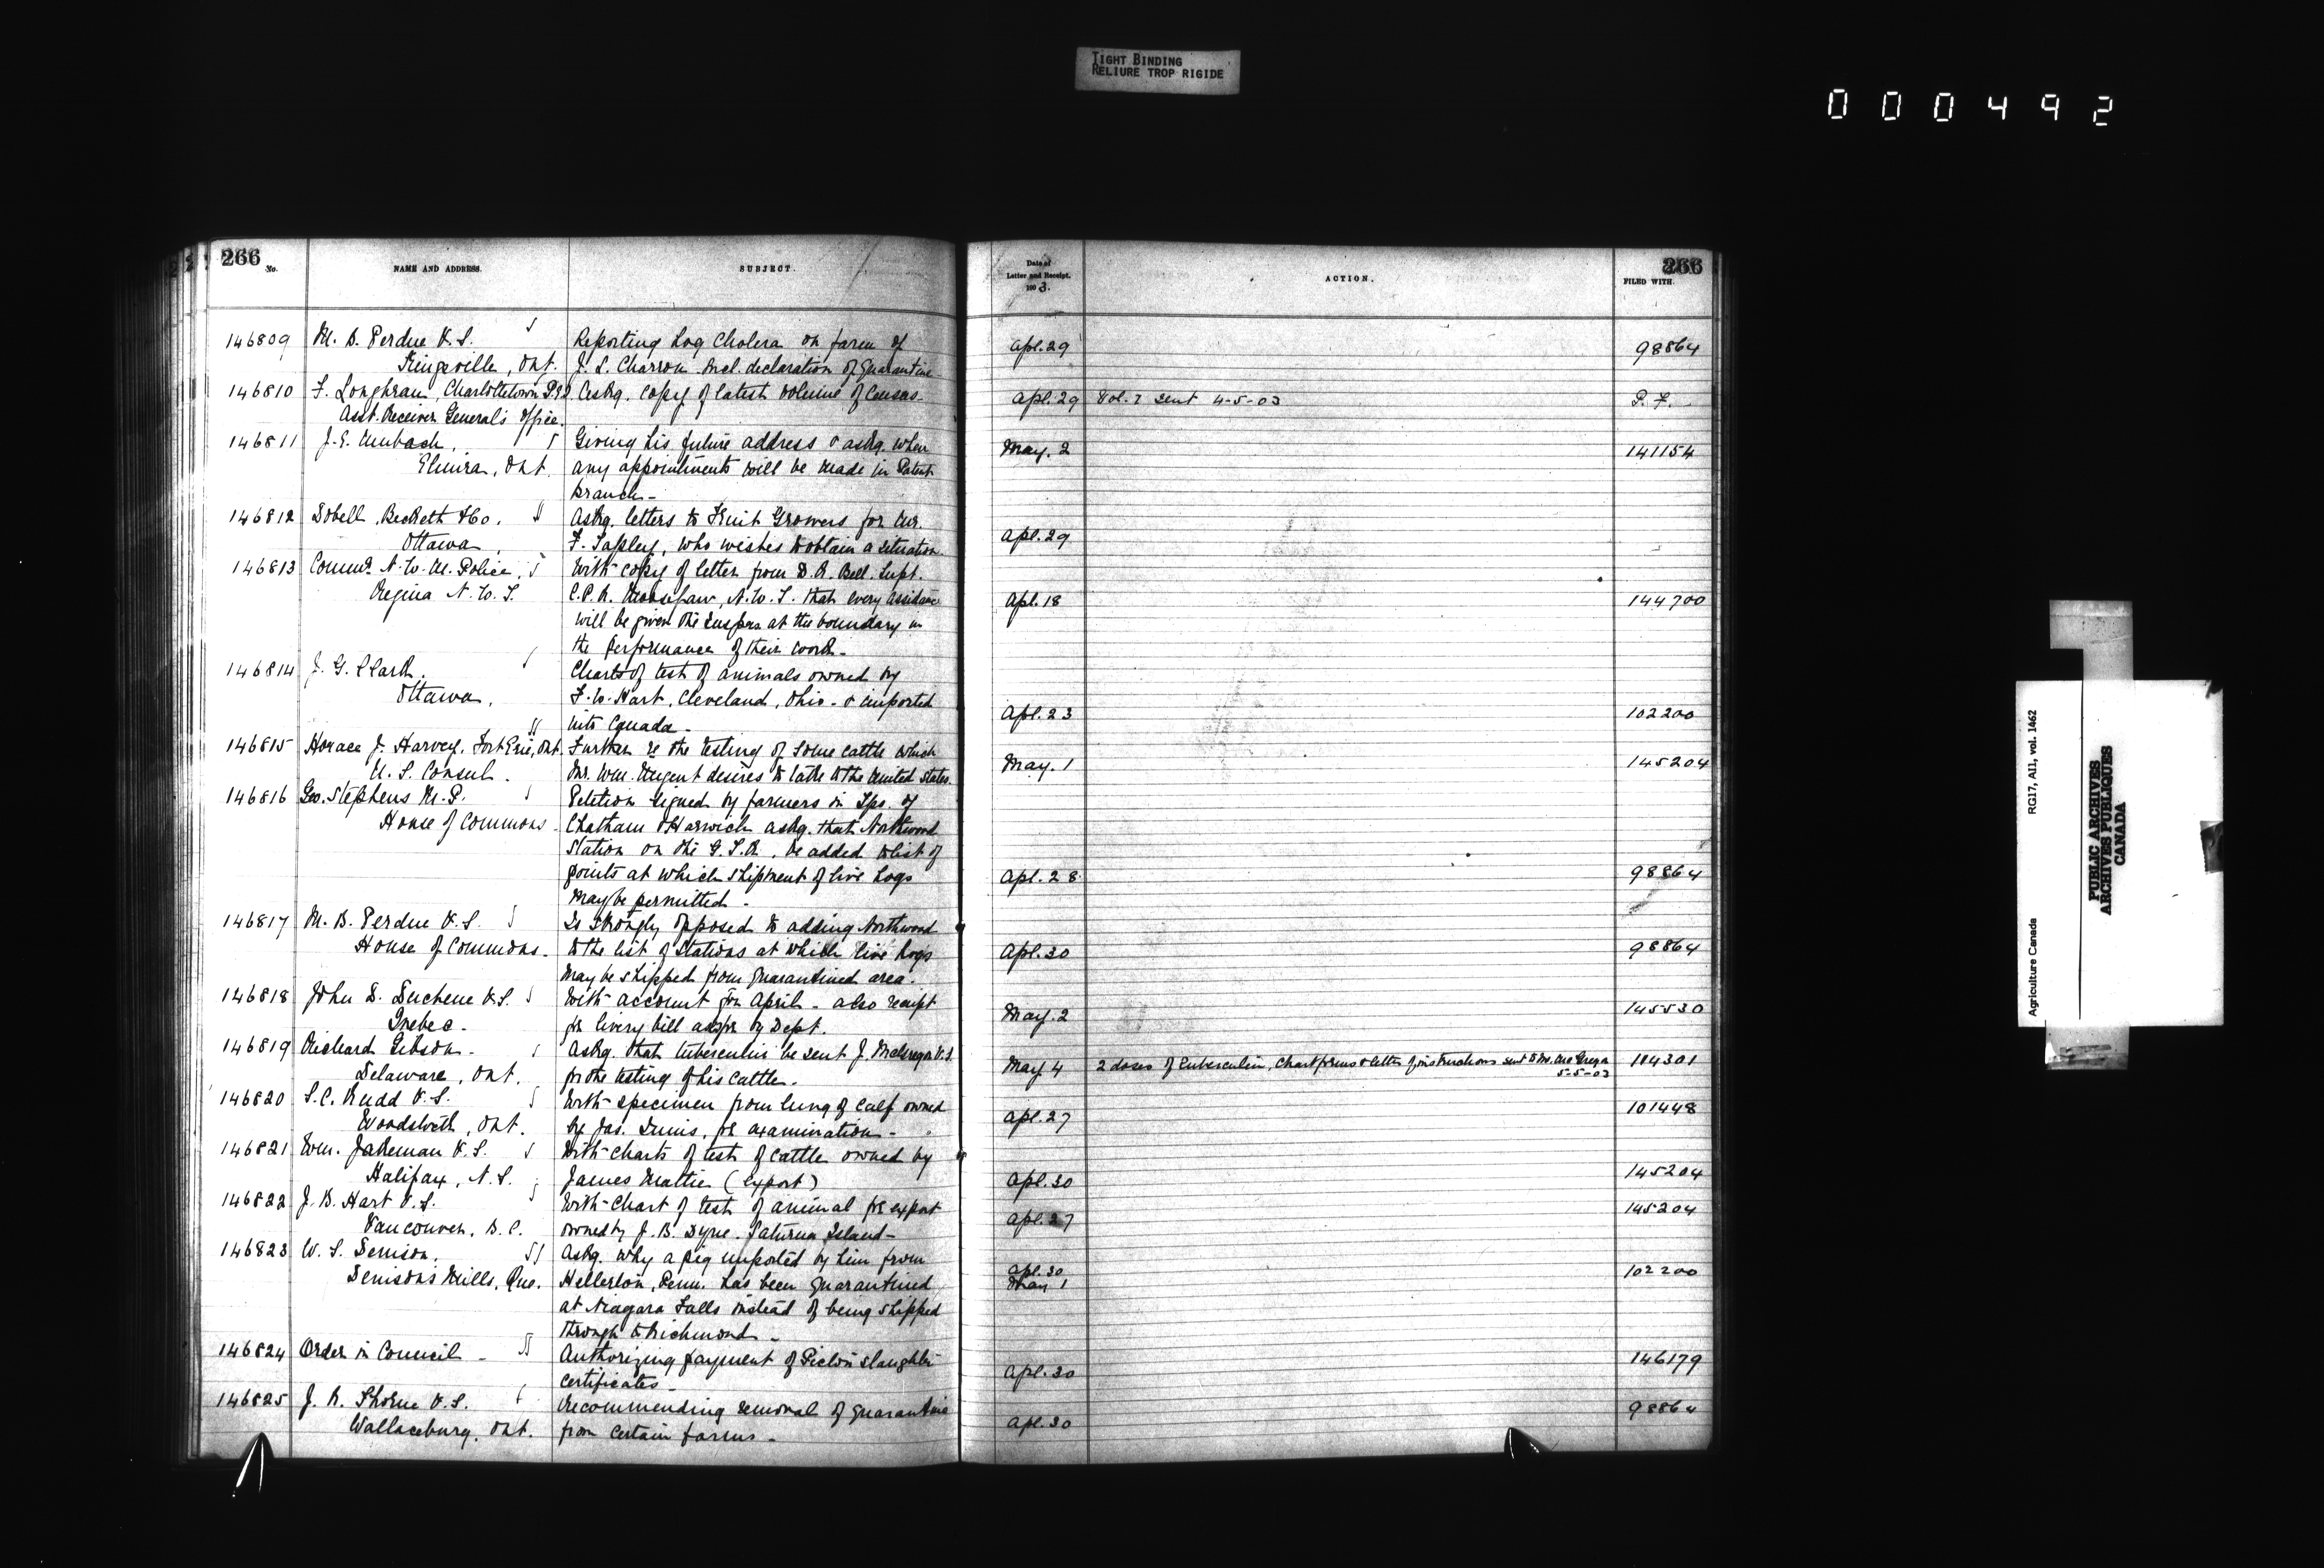 TIGHT BINDING
RELIURE TROP RIGIDE
000492
266
No.
NAME AND ADDRESS.
SUBJECT.
Date of
Letter and Receipt.
190 3.
ACTION.
266
FILED WITH.
146809 M. B. Perdue V.S. Reporting hog Cholera on farm of Apl. 29 98864
Kingsville, Ont. J. L. Charron Incl. declaration of Quarantine
146810 F. Loughran, Charlottetown P.E.I. Askg. copy of latest volume of Census. Apl. 29 Vol. 2 sent 4-5-03 P. F.
Asst. Receiver General's Office.
146811 J. E. Umbach, Giving his future address & askg. when May. 2 141154
Elmira, Ont. any appointments will be made in Patent
Branch -
146812 Dobell, Beckett & Co. Askg. letters to Fruit Growers for Mr.
Ottawa, F. Tapley, who wishes to obtain a situation. Apl. 29
146813 Commr. N. W. M. Police, With copy of letter from D. R. Bell. Supt.
Regina N. W. T. C. P. R. Moosejaw, N. W. T. that every assistance Apl. 18 144700
will be given the Insprs at the boundary in
the performance of their work -
146814 J. G. Clark, Charts of test of animals owned by
Ottawa, F. W. Hart, Cleveland, Ohio - & imported Apl. 23 102200
into Canada -
146815 Horace J. Harvey, Fort Erie, Ont. Further re the testing of some cattle which
U. S. Consul. Mr. Wm. Nugent desires to take to the United States. May. 1 145204
146816 Geo. Stephens M. P. Petition signed by farmers in Tps. of
House of Commons - Chatham & Harwich askg. that Northwood
Station on the G. T. R. be added to list of
points at which shipment of live hogs Apl. 28 98864
may be permitted -
146817 M. B. Perdue V.S. Is strongly opposed to adding Northwood
House of Commons - to the list of stations at which live hogs Apl. 30 98864
may be shipped from quarantined area.
146818 John D. Duchene V.S. With account for April - also receipt
Quebec - for livery bill by Dept. May. 2 145530
146819 Richard Gibson - Askg. that tuberculin be sent J. McGregor V.S.
Delaware, Ont. for the testing of his cattle. May 4 2 doses of tuberculin, Chart forms & letter of instructions sent to Mr. McGregor 104301
5-5-03
146820 S. C. Rudd V.S. With specimen from lung of calf owned
Woodslee, Ont. by Jas. for examination - Apl. 27 101448
146821 Wm. Jakeman V.S. With charts of test of cattle owned by
Halifax, N. S. James Mattie (export) Apl. 30 145204
146822 J. B. Hart V.S. With Chart of test of animal for export
Vancouver, B. C. owned by J. B. Dyne. Saturna Island - Apl. 27 145204
146823 W. S. Denison. Askg. why a pig imported by him from
Denison's Mills, Que. Hellerton, Penn. has been quarantined Apl. 30 May 1 102200
at Niagara Falls instead of being shipped
through to Richmond -
146824 Order in Council - Authorizing payment of Pictou slaughter 146179
certificates - Apl. 30
146825 J. R. Thorne V.S. Recommending removal of quarantine 98864
Wallaceburg, Ont. from certain farms - Apl. 30
Agriculture Canada RG17, AII, vol. 1462
PUBLIC ARCHIVES
ARCHIVES PUBLIQUES
CANADA